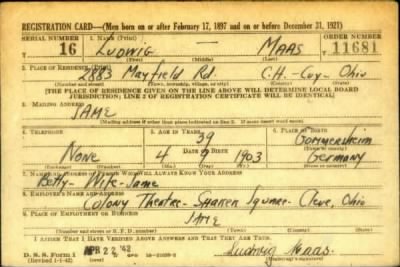 REGISTRATION CARD—(Men born on or after February 17, 1897 and on or before December 31, 1921)
SERIAL NUMBER 1. NAME (Print) ORDER NUMBER
16 LUDWIG — MAAS 11681
(First) (Middle) (Last)
2. PLACE OF RESIDENCE (Print)
2883 Mayfield Rd. C.H.- Cuy- Ohio
(Number and street) (Town, township, village, or city) (County) (State)
[THE PLACE OF RESIDENCE GIVEN ON THE LINE ABOVE WILL DETERMINE LOCAL BOARD
JURISDICTION; LINE 2 OF REGISTRATION CERTIFICATE WILL BE IDENTICAL]
3. MAILING ADDRESS
SAME
(Mailing address if other than place indicated on line 2. If same insert word same)
4. TELEPHONE 5. AGE IN YEARS 6. PLACE OF BIRTH
39 Gommersheim
DATE OF BIRTH (Town or county)
None 4 9 1903 Germany
(Exchange) (Number) (Mo.) (Day) (Yr.) (State or country)
7. NAME AND ADDRESS OF PERSON WHO WILL ALWAYS KNOW YOUR ADDRESS
Betty - Wife - Same
8. EMPLOYER'S NAME AND ADDRESS
Colony Theatre - Shaker Square - Cleve, Ohio
9. PLACE OF EMPLOYMENT OR BUSINESS
SAME
(Number and street or R. F. D. number) (Town) (County) (State)
I AFFIRM THAT I HAVE VERIFIED ABOVE ANSWERS AND THAT THEY ARE TRUE.
D. S. S. Form 1 APR 22 '42 GPO Ludwig Maas
(Revised 1-1-42) (Registrant's signature)